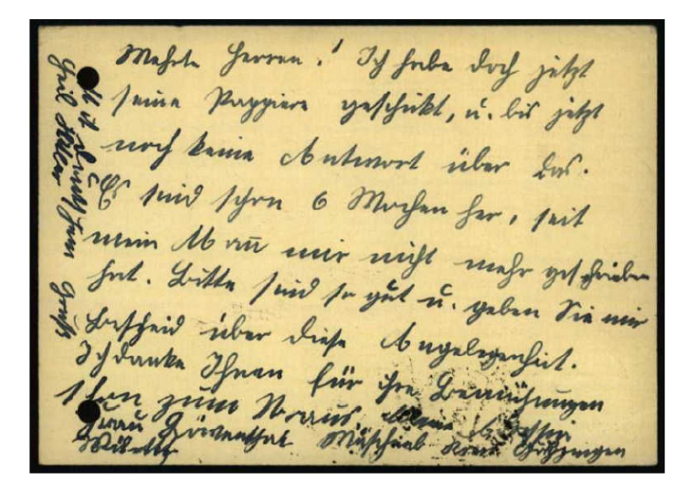 Mehrte Herren! Ich habe doch jetzt
seine Pappiere geschikt, u. bis jetzt
noch keine Antwort über das.
Es sind schon 6 Wochen her, seit
mein Mañ mir nicht mehr geschrieben
hat. Bitte sind so gut u. geben Sie mir
Bescheid über diese Angelegenheit.
Ich danke Ihnen für ihre Bemühungen
schon zum Voraus
Frau Löwenthal
Mit deutschem Gruß
Heil Hitler